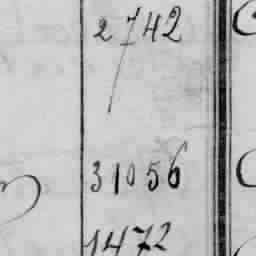 2742
31056
1472